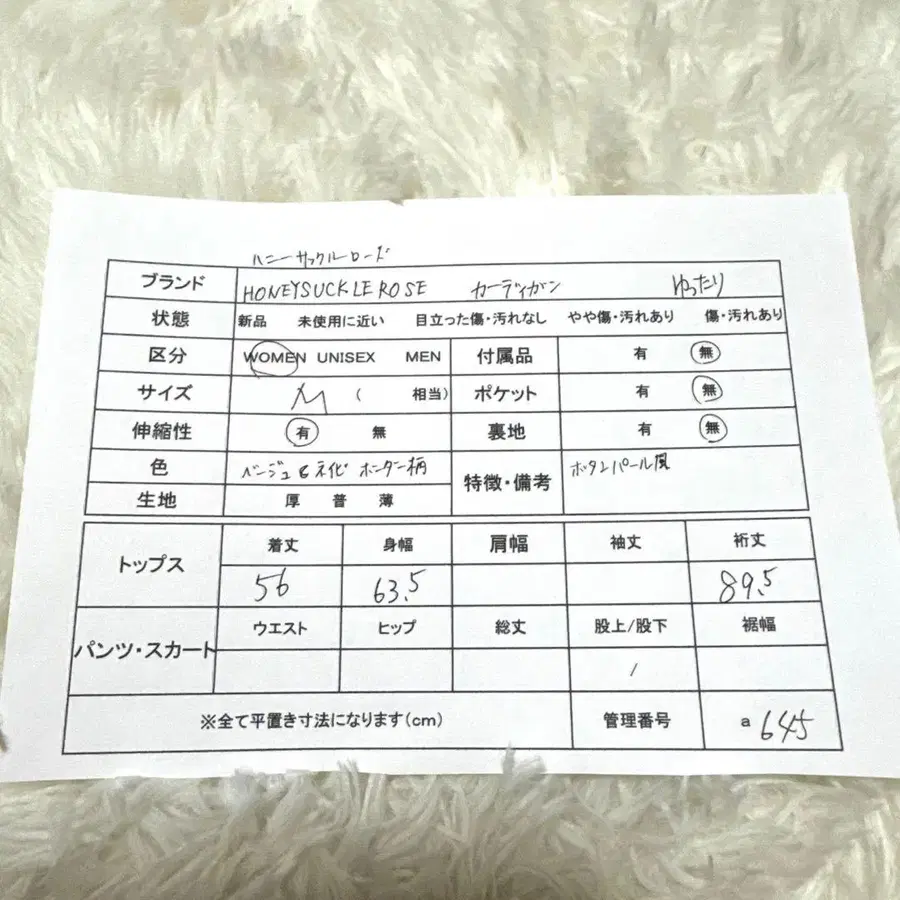 ハニーサックルローズ
ブランド HONEYSUCKLE ROSE カーディガン ゆったり
状態 新品 未使用に近い 目立った傷・汚れなし やや傷・汚れあり 傷・汚れあり
区分 WOMEN UNISEX MEN 付属品 有 無
サイズ M ( 相当) ポケット 有 無
伸縮性 有 無 裏地 有 無
色 ベージュ ボーダー柄 特徴・備考 ボタンパール風
生地 厚 普 薄
トップス 着丈 身幅 肩幅 袖丈 裄丈
56 63.5 89.5
パンツ・スカート ウエスト ヒップ 総丈 股上/股下 裾幅
/
※全て平置き寸法になります(cm) 管理番号 a 645